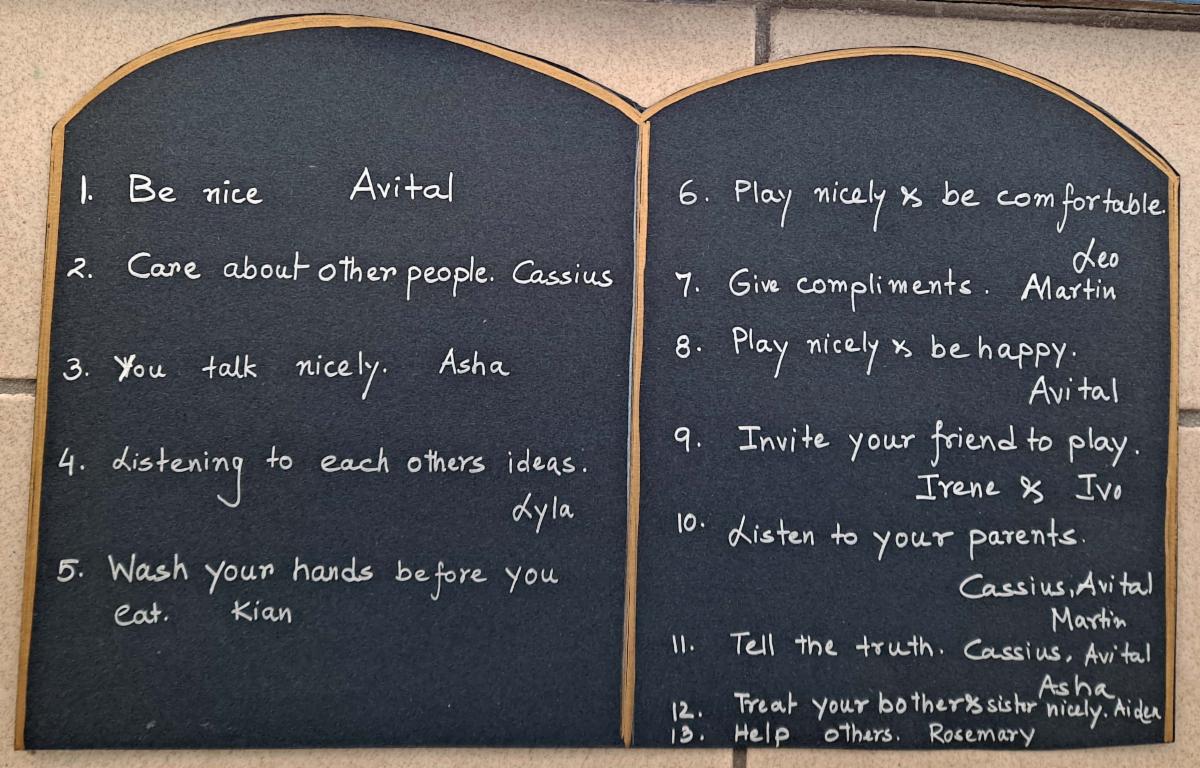 1. Be nice Avital
2. Care about other people. Cassius
3. You talk nicely. Asha
4. Listening to each others ideas.
Lyla
5. Wash your hands before you
eat. Kian
6. Play nicely & be comfortable.
Leo
7. Give compliments. Martin
8. Play nicely & be happy.
Avital
9. Invite your friend to play.
Irene & Ivo
10. Listen to your parents.
Cassius, Avital
Martin
11. Tell the truth. Cassius, Avital
Asha
12. Treat your bother & sister nicely. Aiden
13. Help others. Rosemary